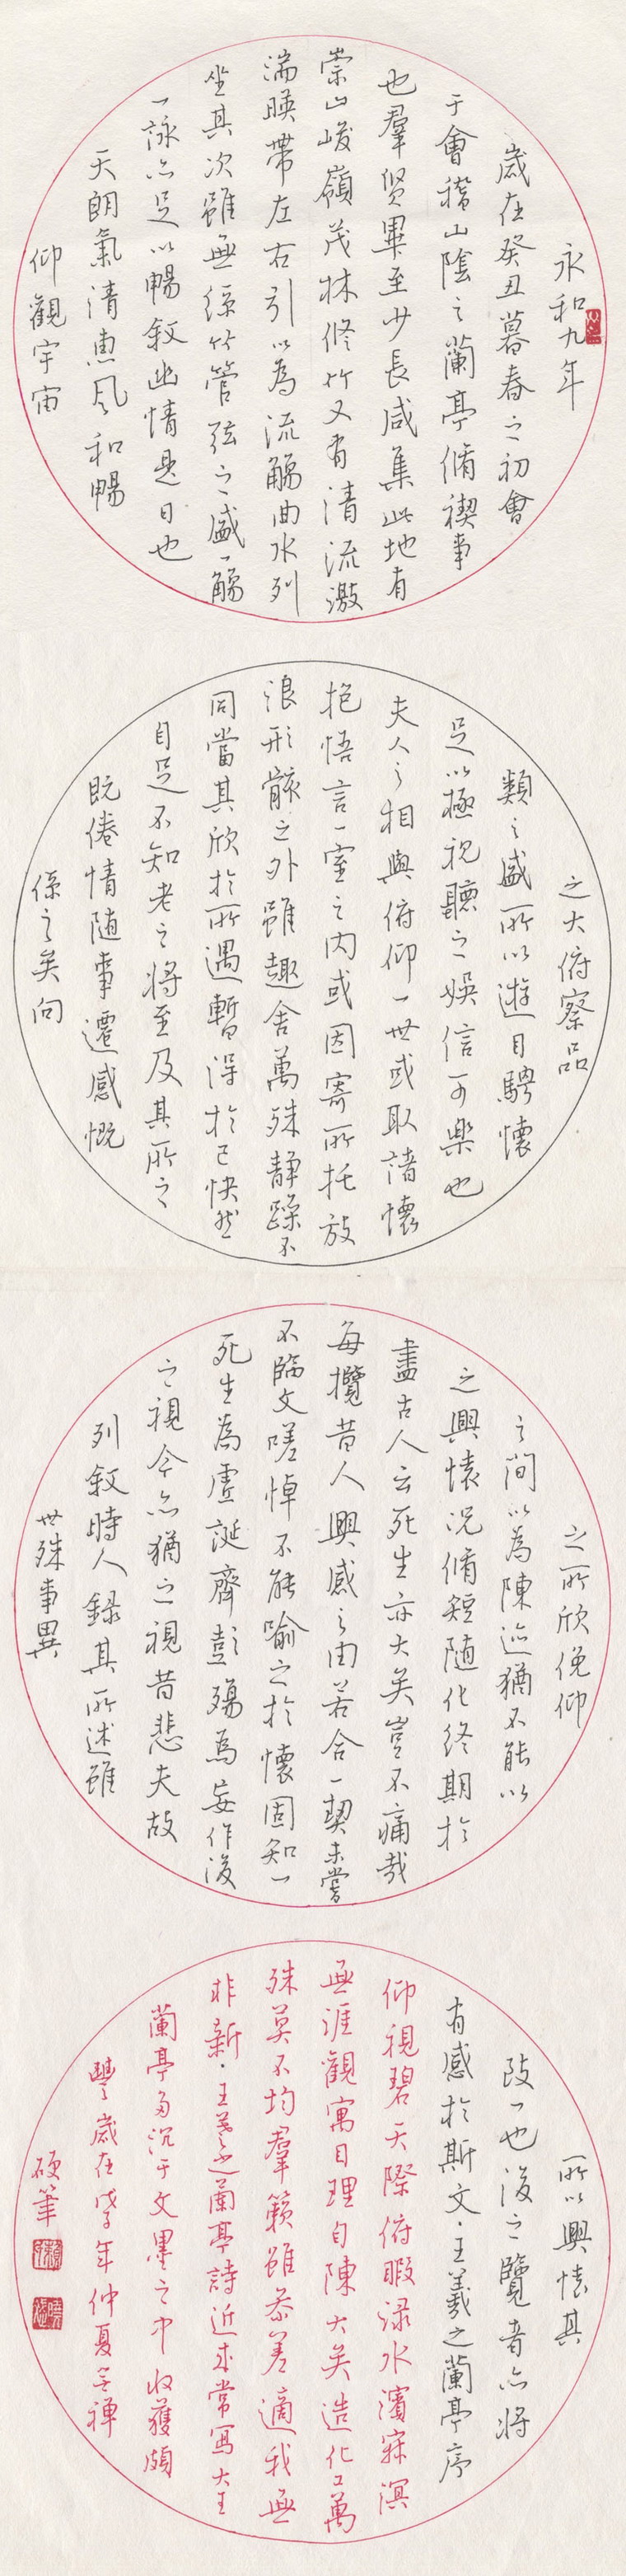 永和九年
歲在癸丑暮春之初會
于會稽山陰之蘭亭脩禊事
也羣賢畢至少長咸集此地有
崇山峻嶺茂林修竹又有清流激
湍暎帶左右引以為流觴曲水列
坐其次雖無絲竹管弦之盛一觴
一詠亦足以暢敘幽情是日也
天朗氣清惠風和暢
仰觀宇宙
之大俯察品
類之盛所以遊目騁懷
足以極視聽之娛信可樂也
夫人之相與俯仰一世或取諸懷
抱悟言一室之內或因寄所托放
浪形骸之外雖趣舍萬殊靜躁不
同當其欣於所遇暫得於己快然
自足不知老之將至及其所之
既倦情隨事遷感慨
係之矣向
之所欣俛仰
之間以為陳迹猶不能以
之興懷況脩短隨化終期於
盡古人云死生亦大矣豈不痛哉
每攬昔人興感之由若合一契未嘗
不臨文嗟悼不能喻之於懷固知一
死生為虛誕齊彭殤為妄作後
之視今亦猶之視昔悲夫故
列敘時人錄其所述雖
世殊事異
所以興懷其
致一也後之覽者亦將
有感於斯文·王羲之蘭亭序
仰視碧天際俯瞰淥水濱寂漠
無涯觀寓目理自陳大矣造化工萬
殊莫不均羣籟雖參差適我無
非新·王羲之蘭亭詩近來常寫大王
蘭亭多沉于文墨之中收獲頗
豐歲在戊子年仲夏言禪
硬筆